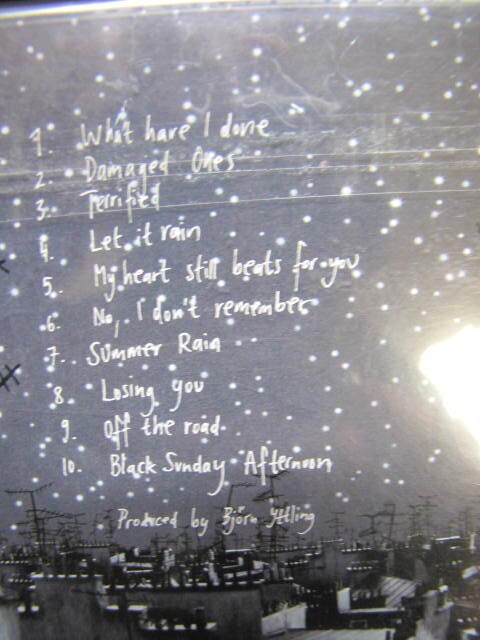 1. What have I done
2. Damaged Ones
3. Terrified
4. Let it rain
5. My heart still beats for you
6. No, I don't remember
7. Summer Rain
8. Losing you
9. Off the road
10. Black Sunday Afternoon
Produced by Björn Yttling